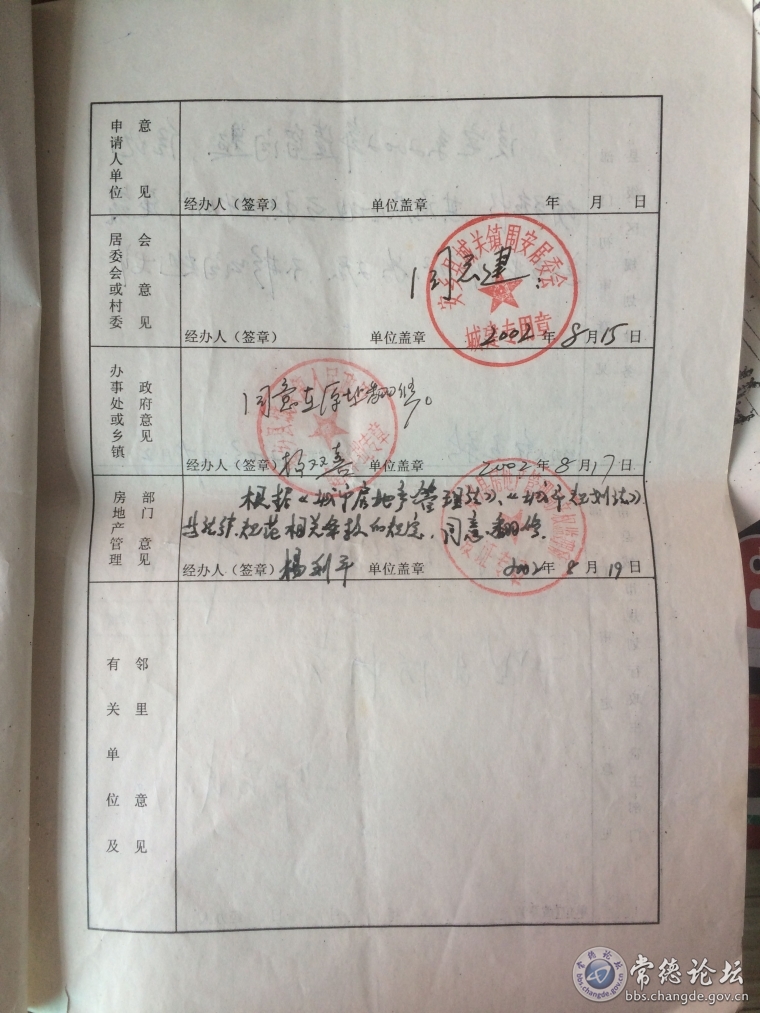 申请人单位意见
经办人（签章） 单位盖章 年 月 日
居委会或村委会意见
同意建：
安乡县城关镇围安居委会
城建专用章
经办人（签章） 单位盖章 2002年8月15日
办事处或乡镇政府意见
同意在原址翻修。
经办人（签章）杨双喜 2002年8月17日
房地产管理部门意见
根据《城市房地产管理法》、《城市规划法》
规范相关条款的规定，同意翻修。
经办人（签章）杨利平 单位盖章 2002年8月19日
有关单位及邻里意见
常德论坛
bbs.changde.gov.cn